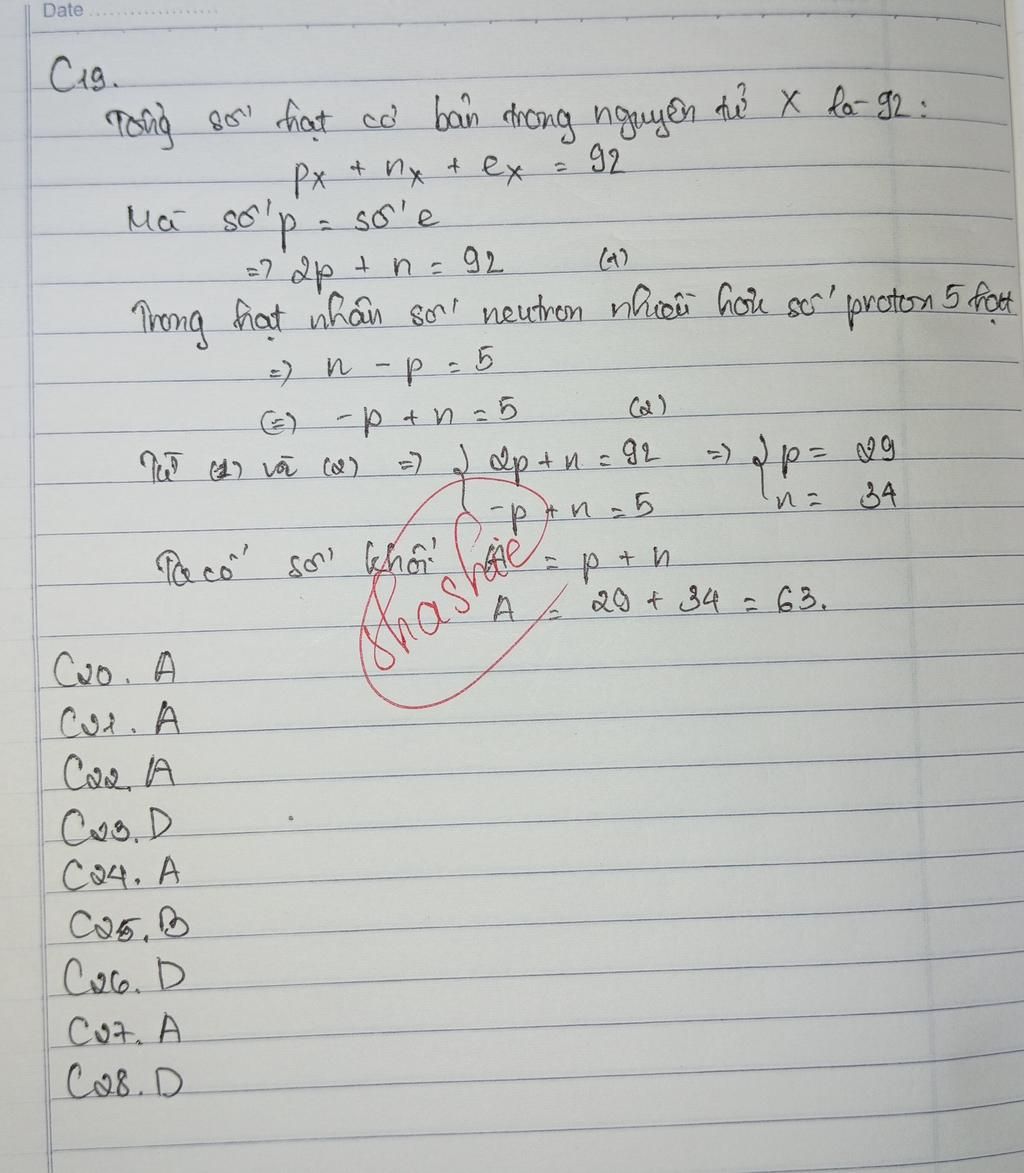 Date
C19.
Tổng số hạt cơ bản trong nguyên tử X là 92:
pX + nX + eX = 92
Mà số p = số e
=> 2p + n = 92 (1)
Trong hạt nhân số neutron nhiều hơn số proton 5 hạt
=> n - p = 5
(=) -p + n = 5 (2)
Từ (1) và (2) => { 2p + n = 92 => { p = 29
-p + n = 5 n = 34
Ta có số khối = p + n
A = 29 + 34 = 63.
C20. A
C21. A
C22. A
C23. D
C24. A
C25. B
C26. D
C27. A
C28. D